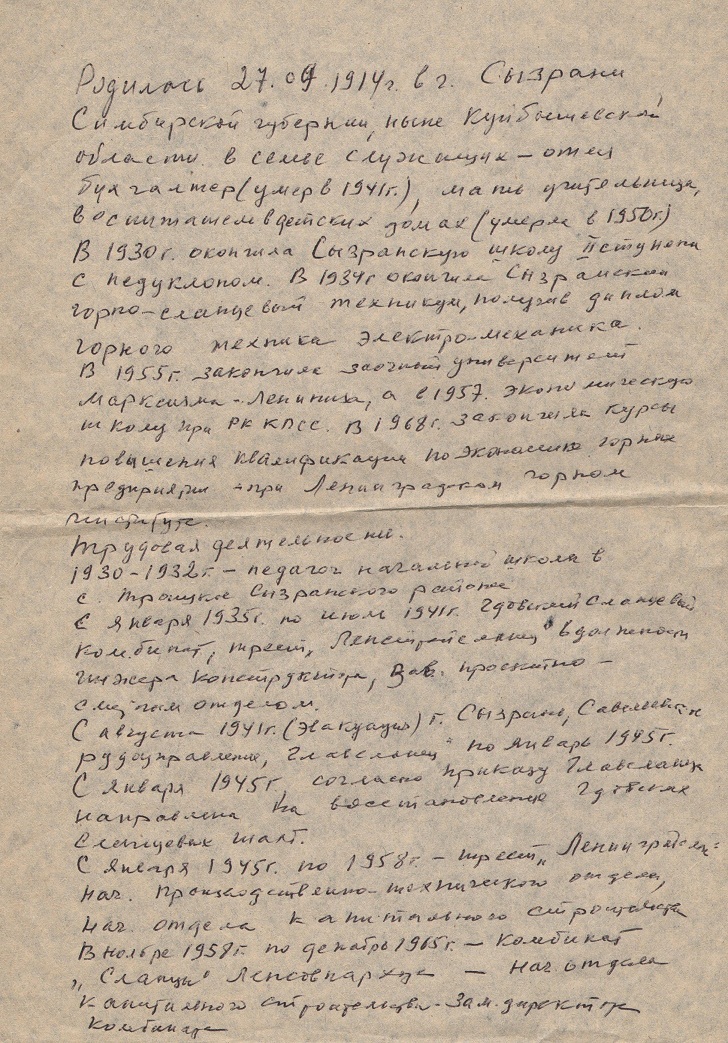 Родилась 27.09.1914г. в г. Сызрани
Симбирской губернии, ныне Куйбышевской
области в семье служащих – отец
бухгалтер (умер в 1941г.), мать учительница,
воспитатем в детских домах (умерла в 1950г.)
В 1930г. окончила Сызранскую школу II ступени
с педуклоном. В 1934г окончила Сызранский
горно-сланцевый техникум, получив диплом
горного техника электро-механика.
В 1955г. закончила заочный университет
Марксизма-Ленинизма, а в 1957. экономическую
школу при РК КПСС. В 1968г. закончила курсы
повышения квалификации по экономике горных
предприятий при Ленинградском горном
институте.
Трудовая деятельность.
1930-1932г. – педагог начальной школа в
с. Троицкое Сызранского района
С января 1935г. по июль 1941г. Гдовский сланцевый
комбинат, трест „Ленстройсланец" в должности
инжера конструктора, Зав. проектно –
сметным отделом.
С августа 1941г. (эвакуация) г. Сызрань, Савельевск
рудоуправление, „Главсланец" по январь 1945г.
С января 1945г, согласно приказу Главсланца
направлена на восстановление Гдовских
сланцевых шахт.
С января 1945г. по 1958г. – трест „Ленинградсла-
нач. производственно-технического отдела,
нач. отдела капитального строительства
В ноябре 1958г. по декабрь 1965г. – Комбинат
„Сланцы" Ленсовнархоза – нач. отдела
капитального строительства. Зам. директора
комбината